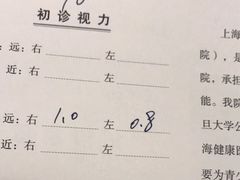 初诊视力
: 远: 右 左
: 近: 右 左
: 远: 右 1.0 左 0.8
: 近: 右 左
上海
院),是
院,承担
能。我院
旦大学公
海健康医
要为青少